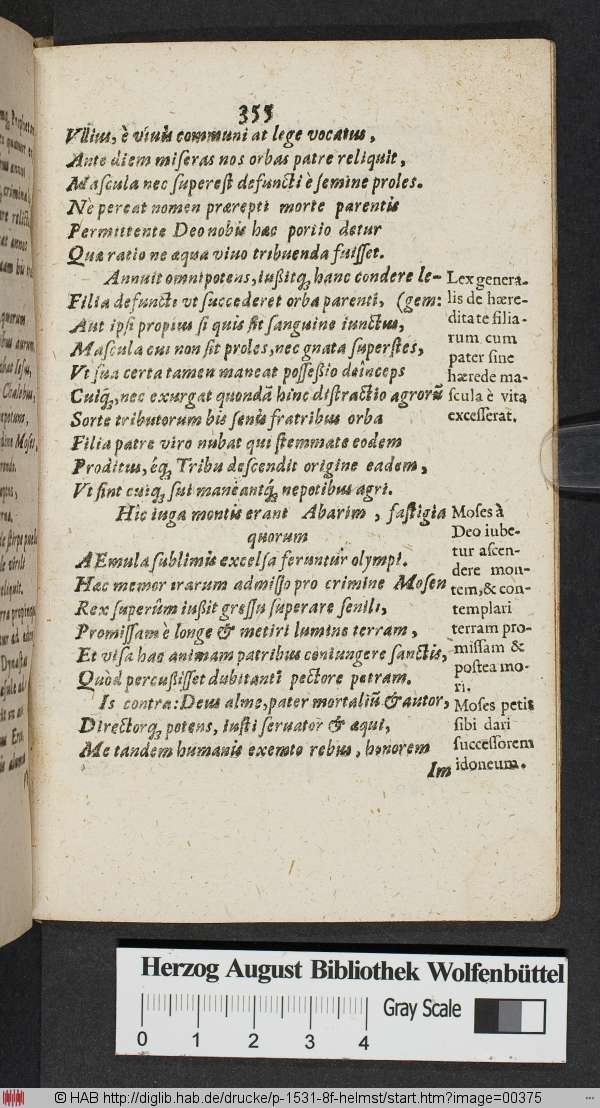 355
Vllius, è viuis communi at lege vocatus,
Ante diem miseras nos orbas patre reliquit,
Mascula nec superest defuncti è semine proles.
Ne pereat nomen prærepti morte parentis
Permittente Deo nobis hæc portio detur
Quæ ratio ne æqua viuo tribuenda fuisset.
Annuit omnipotens, iußitq́, hanc condere le-
Filia defuncti vt succederet orba parenti, (gem:
Aut ipsi propius si quis sit sanguine iunctus,
Mascula cui non sit proles, nec gnata superstes,
Vt sua certa tamen maneat posseßio deinceps
Cuiq́, nec exurgat quondã hinc distractio agrorũ
Sorte tributorum bis senis fratribus orba
Filia patre viro nubat qui stemmate eodem
Proditus, éq́, Tribu descendit origine eadem,
Vt sint cuiq́, sui maneantq́, nepotibus agri.
Hic iuga montis erant Abarim, fastigia
quorum
AEmula sublimis excelsa feruntur olympi.
Hac memor irarum admisso pro crimine Mosen
Rex superûm iußit gressu superare senili,
Promissam è longe & metiri lumine terram,
Et visa hac animam patribus coniungere sanctis,
Quòd percußisset dubitanti pectore petram.
Is contra: Deus alme, pater mortaliũ & autor,
Directorq́, potens, iusti seruator & æqui,
Me tandem humanis exemto rebus, honorem
Im
Lex genera-
lis de hære-
ditate filia-
rum cum
pater sine
hærede ma-
scula è vita
excesserat.
Moses à
Deo iube-
tur ascen-
dere mon-
tem, & con-
templari
terram pro-
missam &
postea mo-
ri.
Moses petit
sibi dari
successorem
idoneum.
Herzog August Bibliothek Wolfenbüttel
Gray Scale
0 1 2 3 4
© HAB http://diglib.hab.de/drucke/p-1531-8f-helmst/start.htm?image=00375